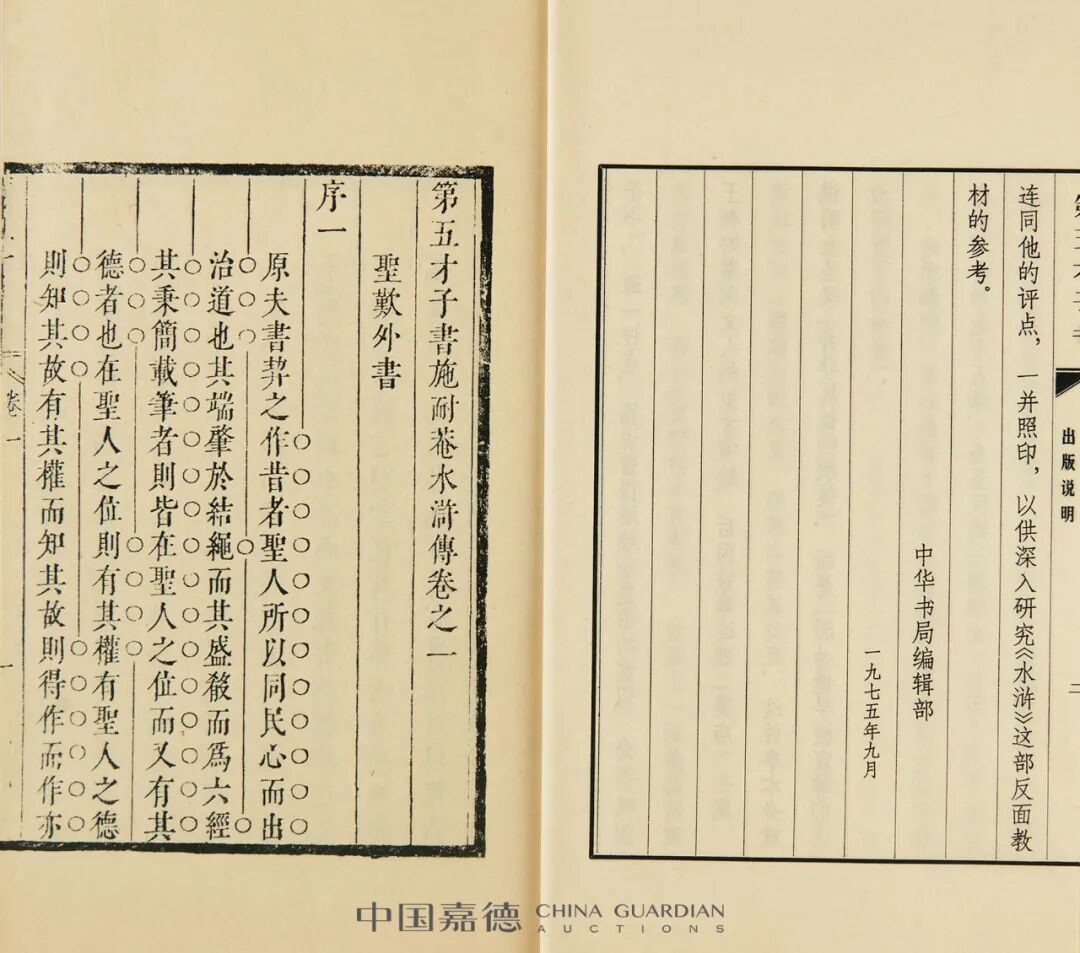 连同他的评点，一并照印，以供深入研究《水浒》这部反面教
材的参考。
中华书局编辑部
一九七五年九月
出版说明
二
第五才子書施耐菴水滸傳卷之一
聖歎外書
序一
原夫書契之作昔者聖人所以同民心而出
治道也其端肇於結繩而其盛殽而爲六經
其秉簡載筆者則皆在聖人之位而又有其
德者也在聖人之位則有其權有聖人之德
則知其故有其權而知其故則得作而作亦
卷一
一
中国嘉德 CHINA GUARDIAN
AUCTIONS